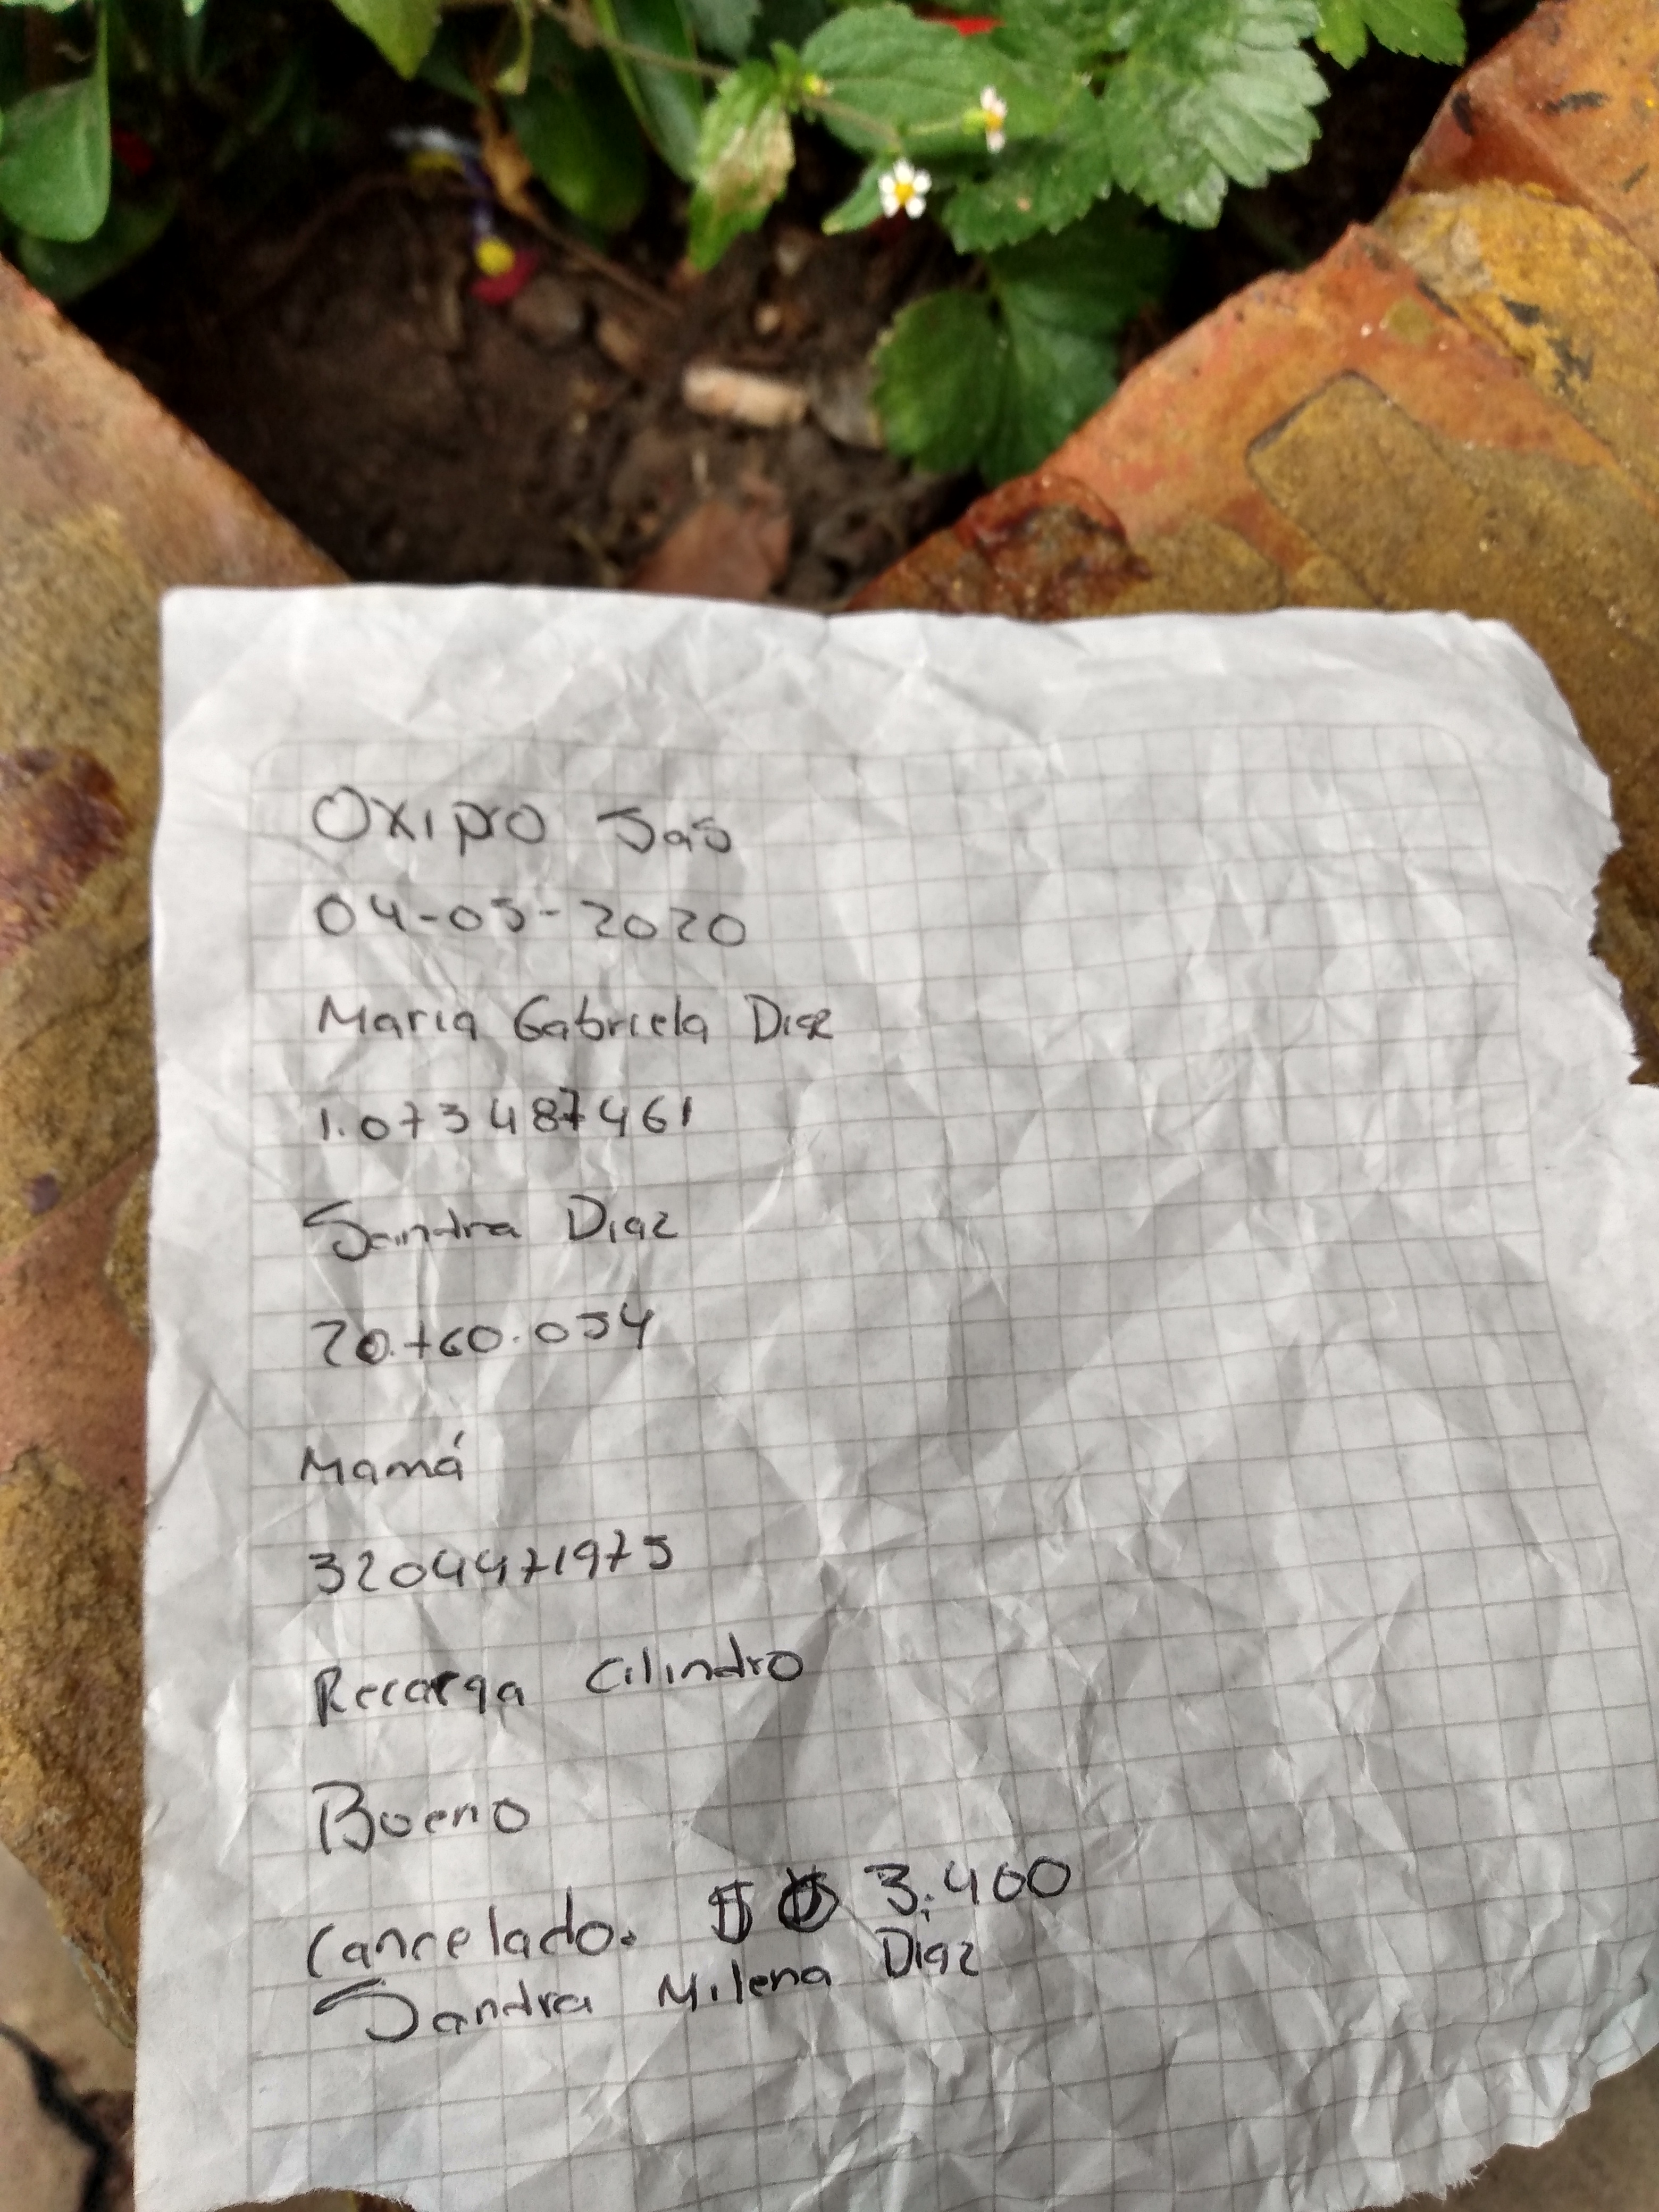 Oxipro Sas
04-05-2020
Maria Gabriela Diaz
1.073487461
Sandra Diaz
20.760.054
Mamá
3204471975
Recarga Cilindro
Bueno
Cancelado. $ 3.400
Sandra Milena Diaz